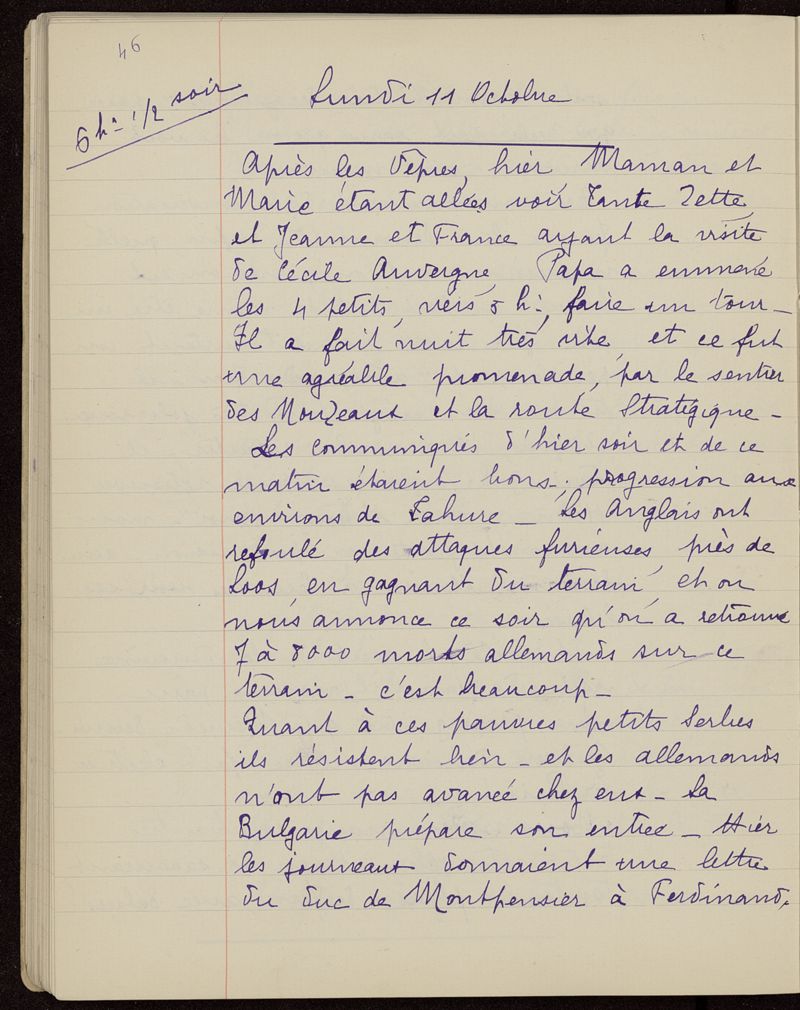 46
6 h. 1/2 soir
Lundi 11 Octobre
Après les Vêpres, hier Maman et
Marie étant allées voir Tante Zette,
et Jeanne et France ayant la visite
de Cécile Auvergne, Papa a emmené
les 4 petits, vers 5 h., faire un tour -
Il a fait nuit très vite, et ce fut
une agréable promenade, par le sentier
des Mouzeaux et la route Stratégique -
Les communiqués d'hier soir et de ce
matin étaient bons - : progression aux
environs de Tahure - Les Anglais ont
refoulé des attaques furieuses, près de
Loos, en gagnant du terrain, et on
nous annonce ce soir qu'on a retrouvé
7 à 8000 morts allemands sur ce
terrain - c'est beaucoup -
Quant à ces pauvres petits Serbes
ils résistent bien - et les allemands
n'ont pas avancé chez eux - La
Bulgarie prépare son entrée - Hier
les journeaux donnaient une lettre
du duc de Montpensier à Ferdinand.